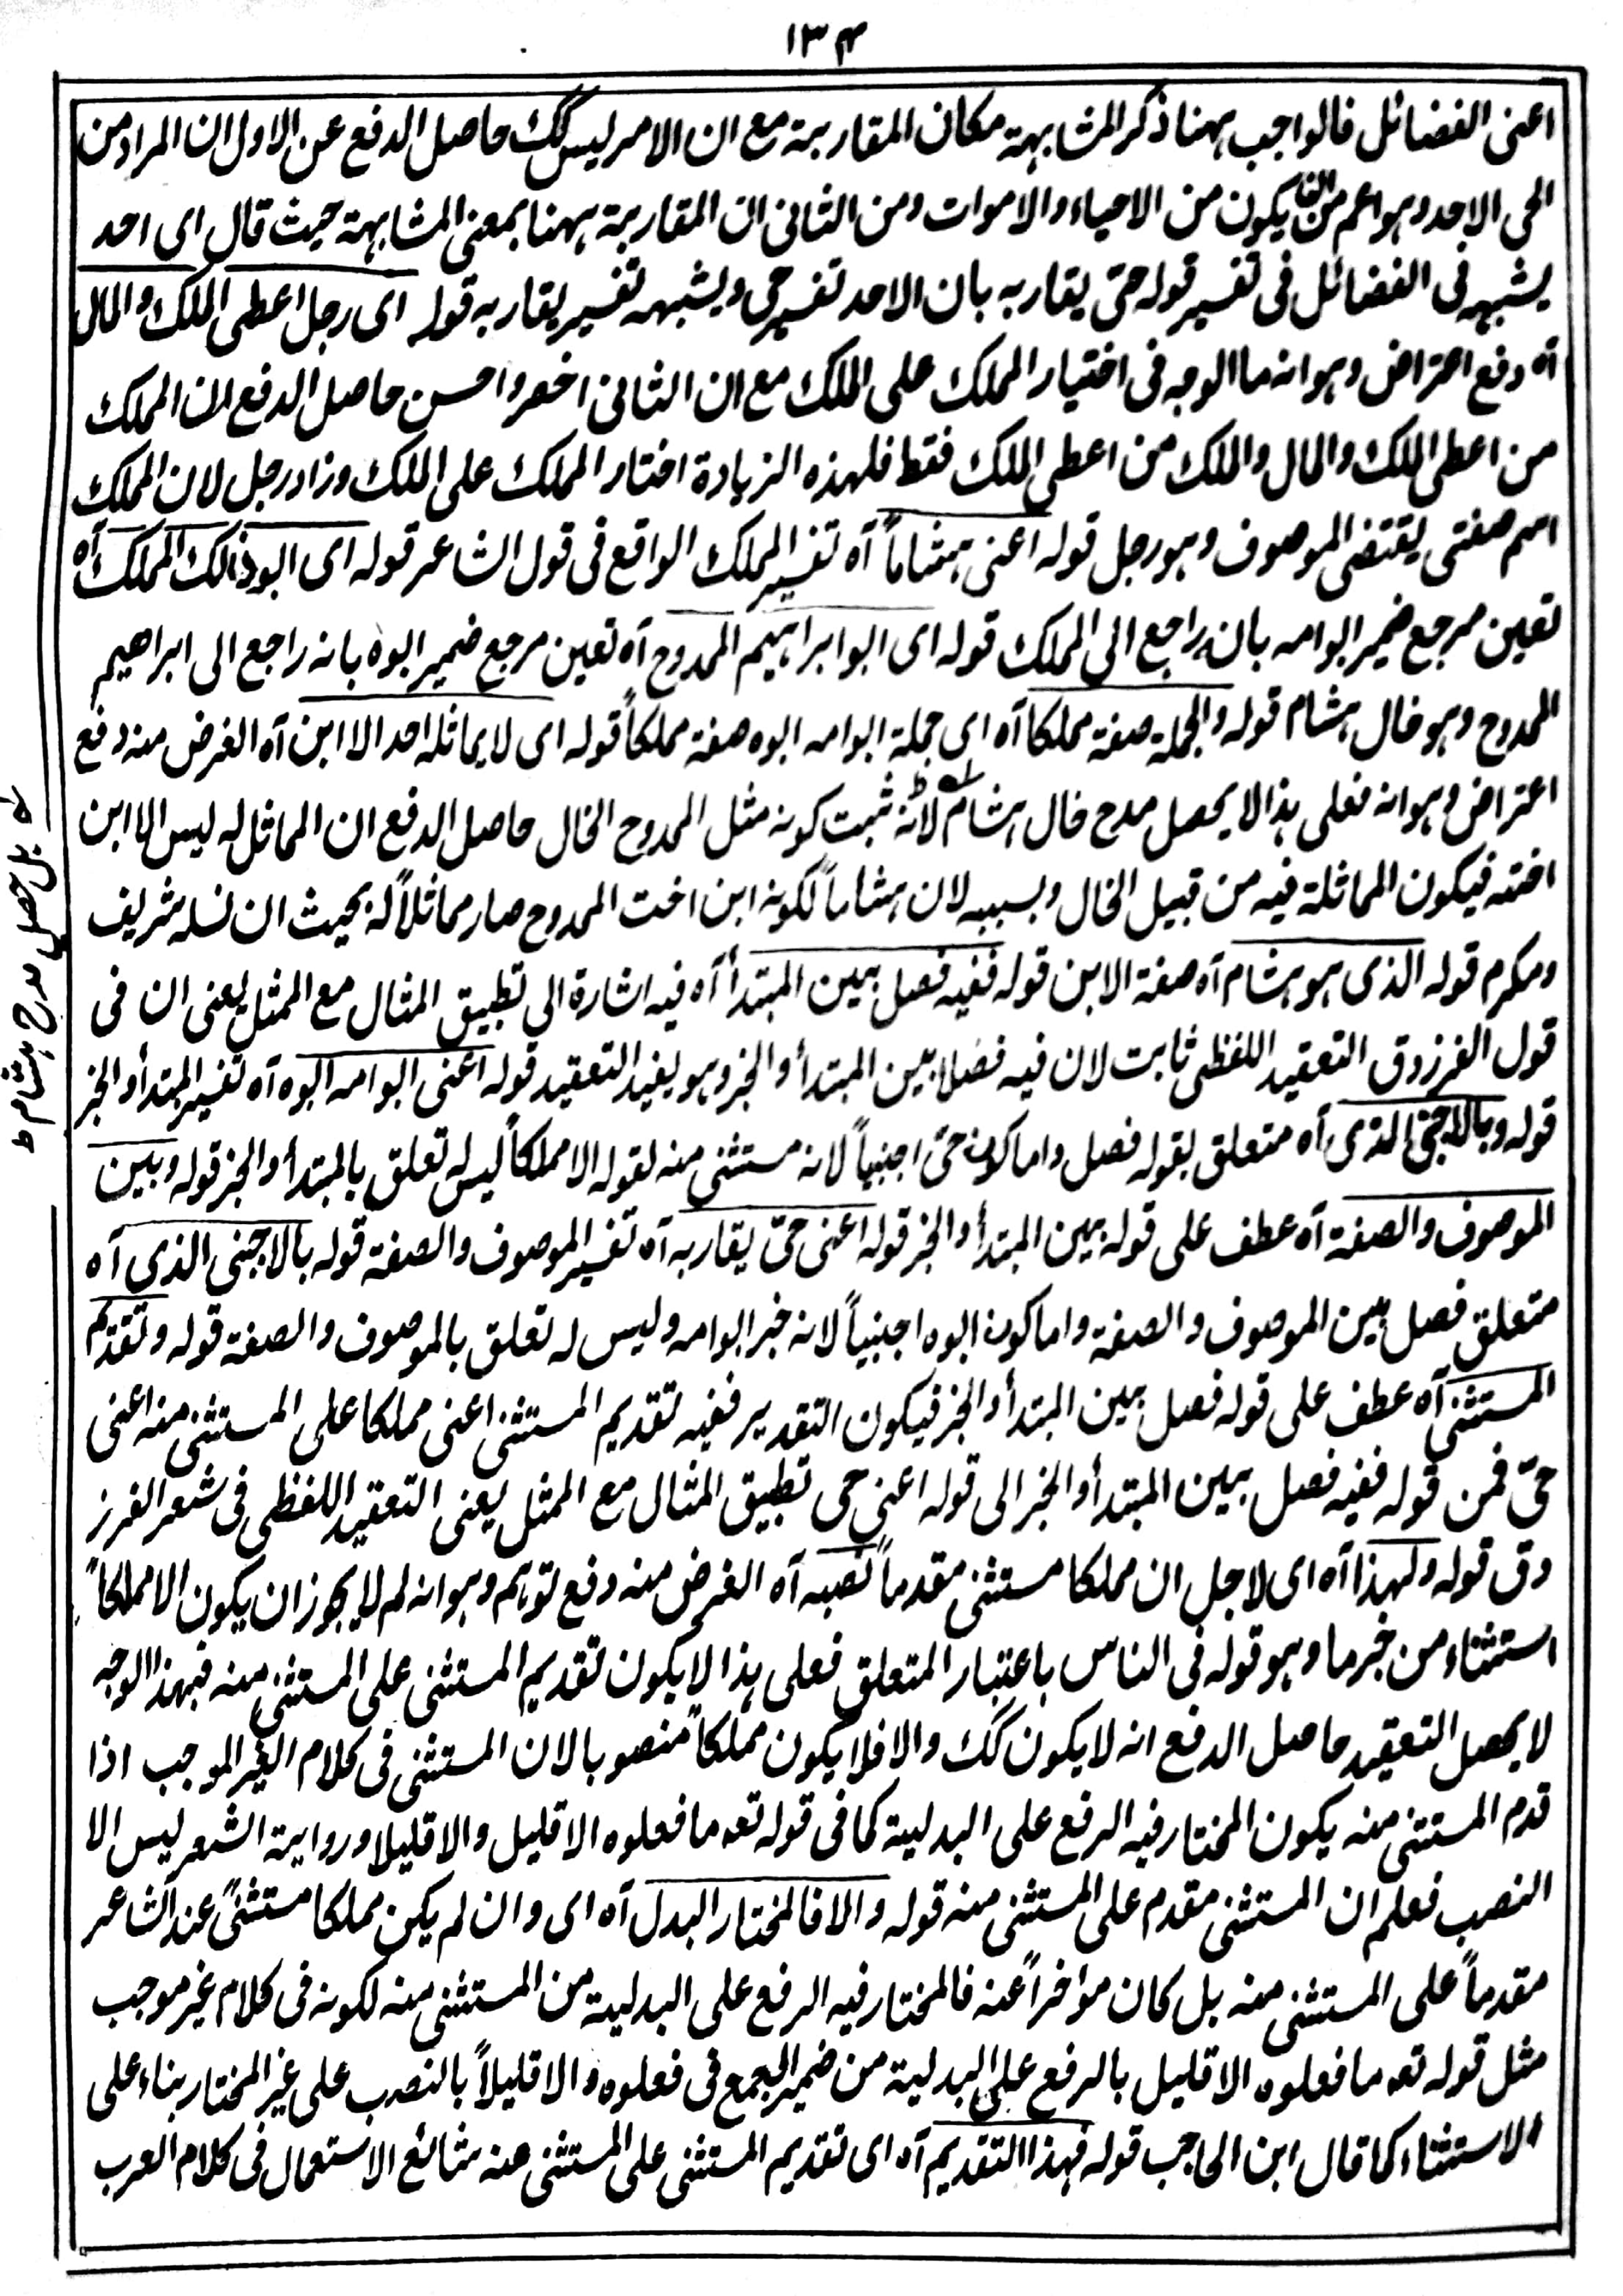 ١٣٤
اعنى الفضائل فالواجب ههنا ذكر المشابهة مكان المقاربة مع ان الامر ليس كك حاصل الدفع عن الاول ان المراد من
الحى الاحد وهو اعم من ان يكون من الاحياء والاموات ومن الثانى ان المقاربة ههنا بمعنى المشابهة حيث قال اى احد
يشبهه فى الفضائل فى تفسير قوله حىّ يقاربه بان الاحد تفسير حى ويشبهه تفسير يقاربه قوله اى رجل اعطى الملك والمال
آه دفع اعتراض وهو انه ما الوجه فى اختيار المملك على الملك مع ان الثانى اخصر واحسن حاصل الدفع ان المملك
من اعطى الملك والمال والملك من اعطى الملك فقط فلهذه الزيادة اختار المملك على الملك وزاد رجل لان المملك
اسم صفتى يقتضى الموصوف وهو رجل قوله اعنى هشاماً آه تفسير المملك الواقع فى قول الشاعر قوله اى ابو ذالك المملك آه
تعين مرجع ضمير ابو امه بانه راجع الى المملك قوله اى ابو ابراهيم الممدوح آه تعين مرجع ضمير ابوه بانه راجع الى ابراهيم
الممدوح وهو خال هشام قوله والجملة صفة مملكا آه اى جملة ابو امه ابوه صفة مملكاً قوله اى لا يماثله احد الا ابن آه الغرض منه دفع
اعتراض وهو انه فعلى هذا لا يحصل مدح خال هشام لانه ثبت كونه مثل الممدوح الخال حاصل الدفع ان المماثل له ليس الا ابن
اخته فيكون المماثلة فيه من قبيل الخال وبسببه لان هشاماً لكونه ابن اخت الممدوح صار مماثلاً له بحيث ان نسله شريف
ومكرم قوله الذى هو هشام آه صفة الابن قوله ففيه فصل بين المبتدأ آه فيه اشارة الى تطبيق المثال مع الممثل يعنى ان فى
قول الفرزدق التعقيد اللفظى ثابت لان فيه فصلا بين المبتدأ والخبر وهو يفيد التعقيد قوله اعنى ابو امه ابوه آه تفسير المبتدأ والخبر
قوله وبالاجنبى الذى آه متعلق بقوله فصل واما كون حىّ اجنبياً لانه مستثنى منه لقوله الا مملكاً ليس له تعلق بالمبتدأ والخبر قوله وبين
الموصوف والصفة آه عطف على قوله بين المبتدأ والخبر قوله اعنى حىّ يقاربه آه تفسير الموصوف والصفة قوله بالاجنبى الذى آه
متعلق فصل بين الموصوف والصفة واما كون ابوه اجنبياً لانه خبر ابو امه وليس له تعلق بالموصوف والصفة قوله وتقديم
المستثنى آه عطف على قوله فصل بين المبتدأ والخبر فيكون التقدير ففيه تقديم المستثنى اعنى مملكا على المستثنى منه اعنى
حىّ فمن قوله ففيه فصل بين المبتدأ والخبر الى قوله اعنى حى تطبيق المثال مع الممثل يعنى التعقيد اللفظى فى شعر الفرز
دق قوله ولهذا آه اى لاجل ان مملكا مستثنى مقدماً نصبه آه الغرض منه دفع توهم وهو انه لم لا يجوز ان يكون الا مملكاً
استثناء من خبر ما وهو قوله فى الناس باعتبار المتعلق فعلى هذا لا يكون تقديم المستثنى على المستثنى منه فبهذا الوجه
لا يحصل التعقيد حاصل الدفع انه لا يكون كك والا فلا يكون مملكاً منصوبا لان المستثنى فى كلام الغير الموجب اذا
قدم المستثنى منه يكون المختار فيه الرفع على البدلية كما فى قوله تعه ما فعلوه الا قليل والا قليلا ورواية الشعر ليس الا
النصب فعلم ان المستثنى مقدم على المستثنى منه قوله والا فالمختار البدل آه اى وان لم يكن مملكا مستثنىً عند الشاعر
مقدماً على المستثنى منه بل كان مؤخراً عنه فالمختار فيه الرفع على البدلية من المستثنى منه لكونه فى كلام غير موجب
مثل قوله تعه ما فعلوه الا قليل بالرفع على البدلية من ضمير الجمع فى فعلوه والا قليلاً بالنصب على غير المختار بناء على
الاستثناء كما قال ابن الحاجب قوله فهذا التقديم آه اى تقديم المستثنى على المستثنى منه شائع الاستعمال فى كلام العرب
بل حصل مدح هشام ط